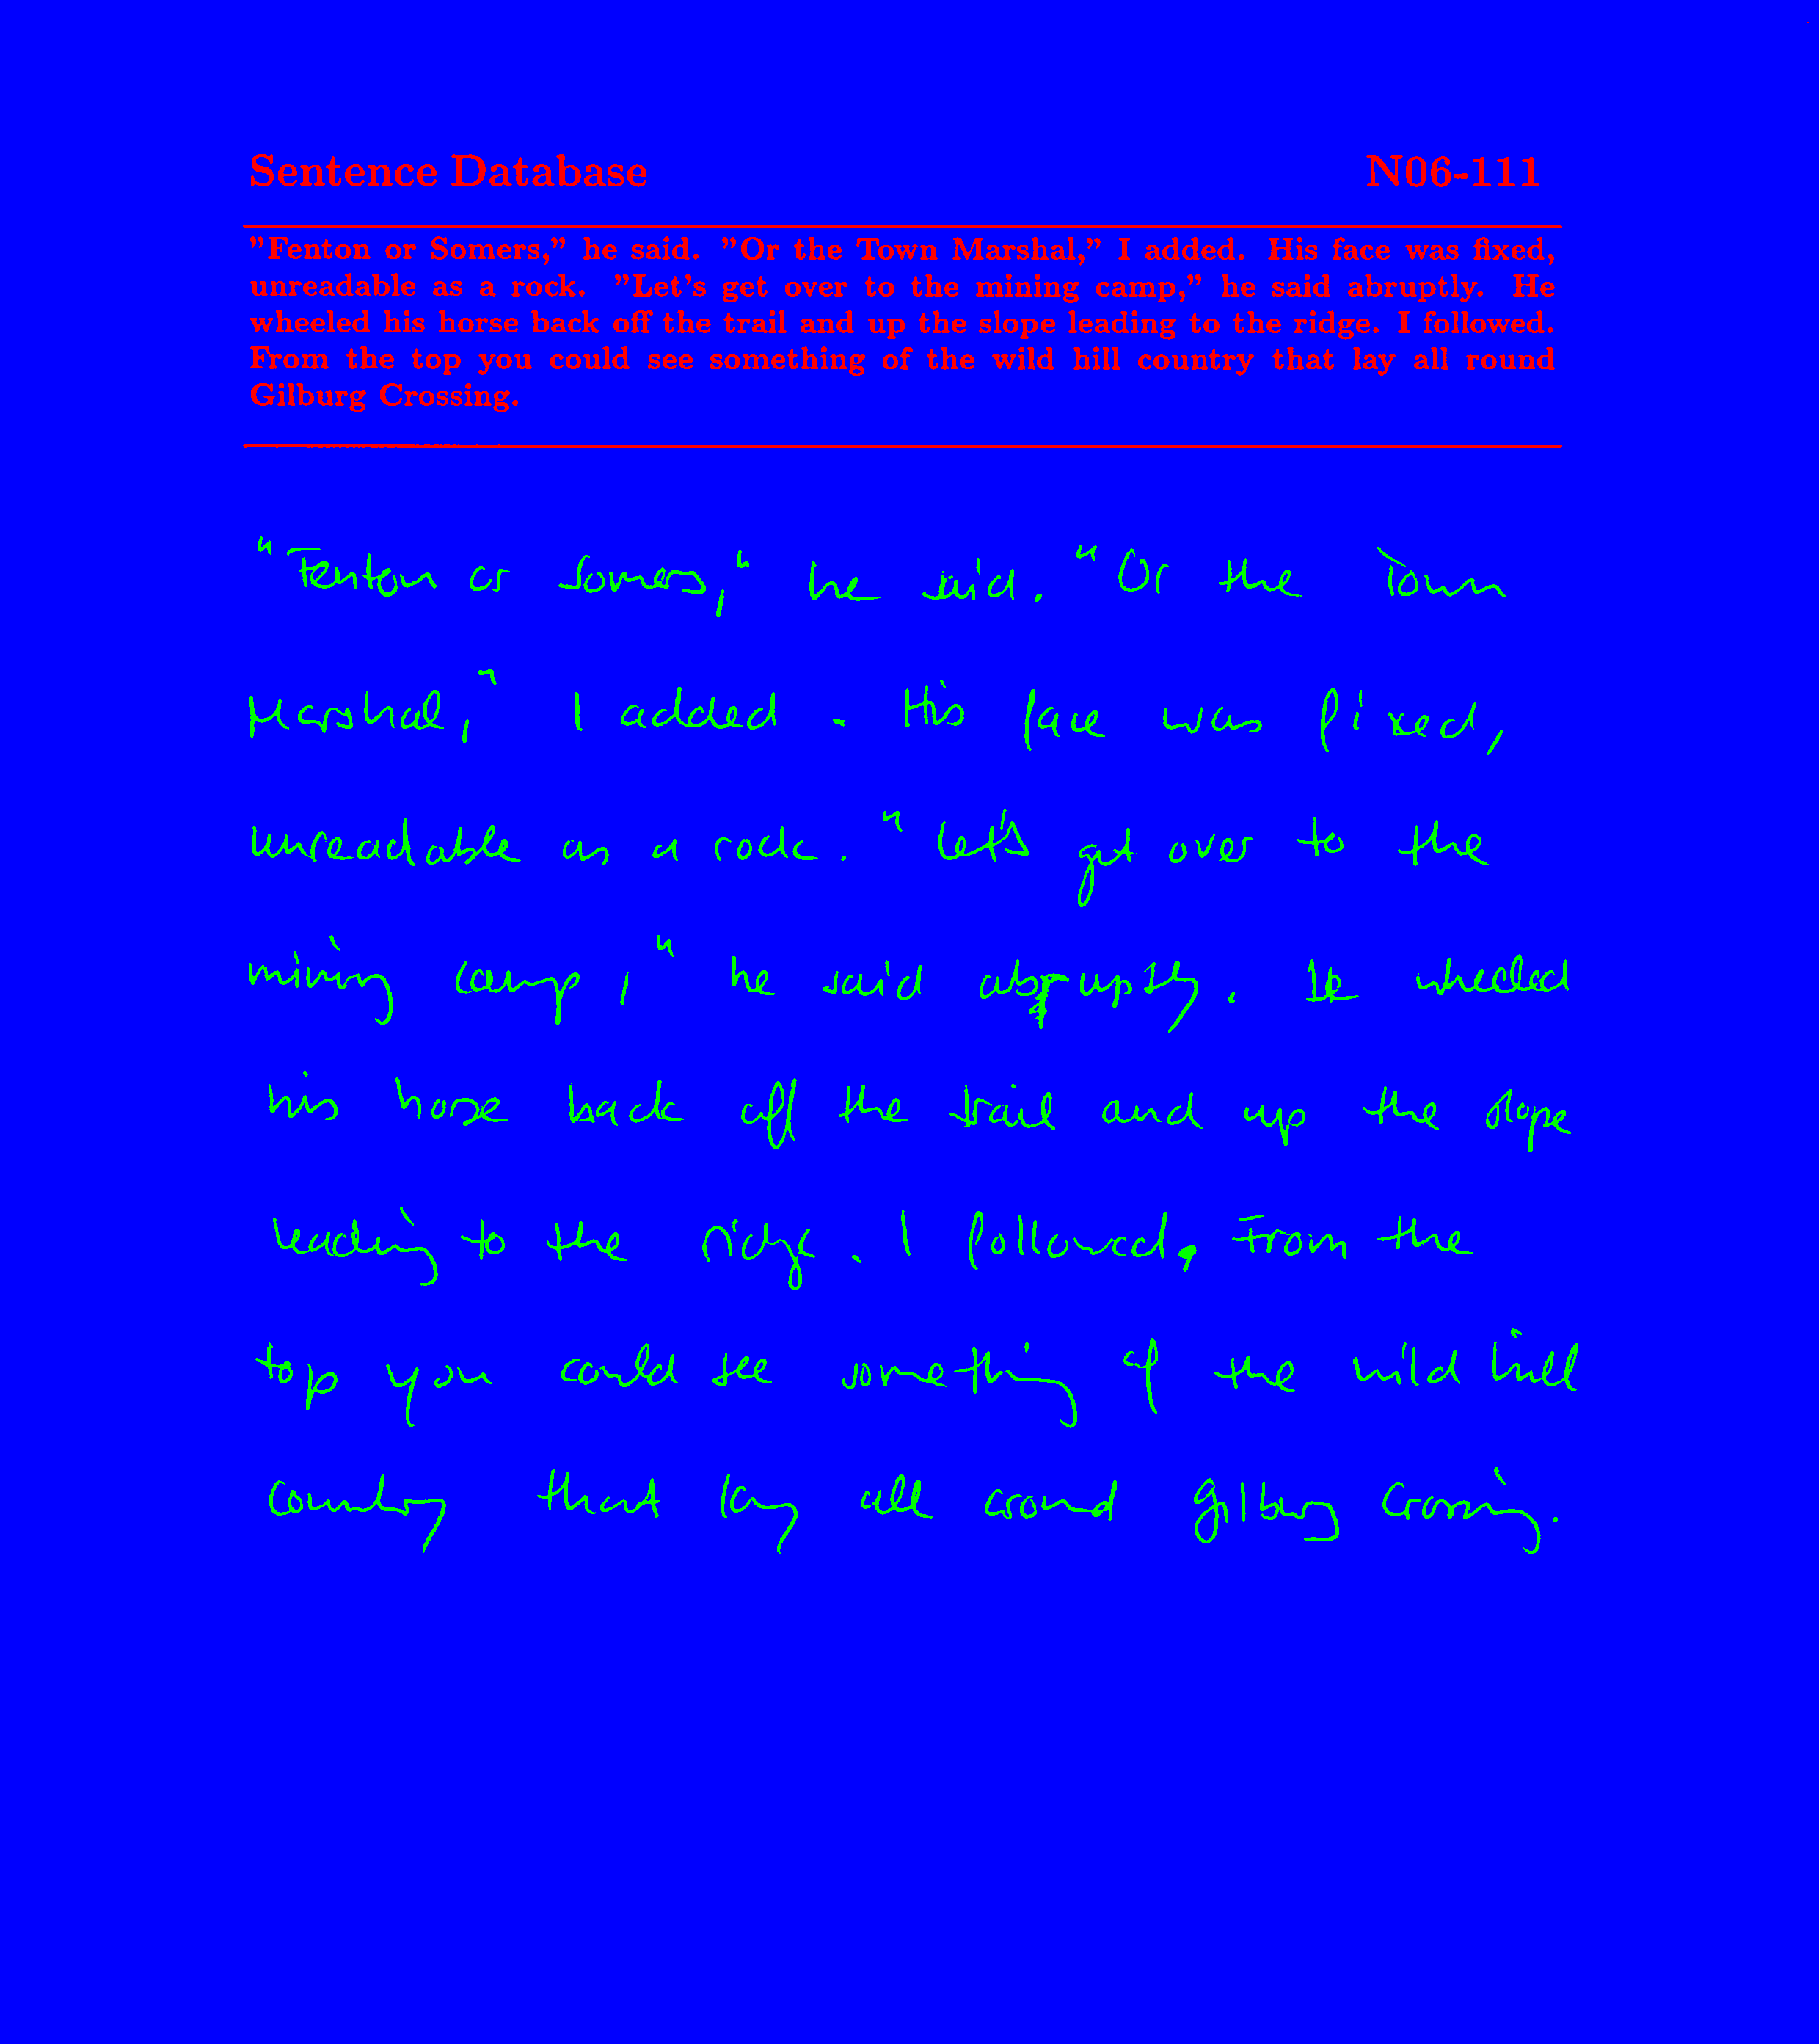 Sentence Database N06-111
"Fenton or Somers," he said. "Or the Town Marshal," I added. His face was fixed,
unreadable as a rock. "Let's get over to the mining camp," he said abruptly. He
wheeled his horse back off the trail and up the slope leading to the ridge. I followed.
From the top you could see something of the wild hill country that lay all round
Gilburg Crossing.
"Fenton or Somers," he said. "Or the Town
Marshal," I added. His face was fixed,
unreadable as a rock. "Let's get over to the
mining camp," he said abruptly. He wheeled
his horse back off the trail and up the slope
leading to the ridge. I followed. From the
top you could see something of the wild hill
country that lay all around Gilburg Crossing.